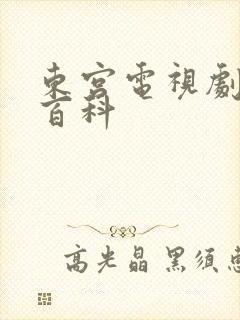 東宮電視劇
百科
高光晶 黑須